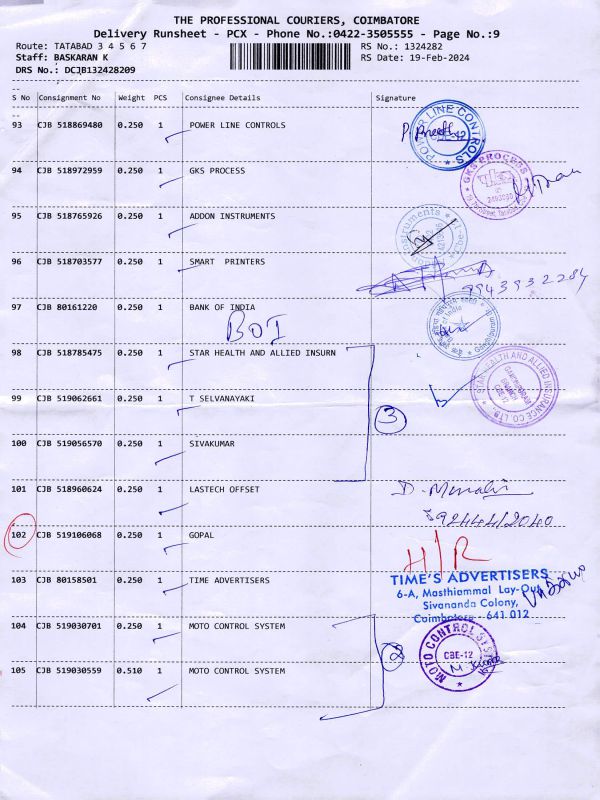 THE PROFESSIONAL COURIERS, COIMBATORE
Delivery Runsheet - PCX - Phone No.:0422-3505555 - Page No.:9
Route: TATABAD 3 4 5 6 7 RS No.: 1324282
Staff: BASKARAN K RS Date: 19-Feb-2024
DRS No.: DCJB132428209
S No Consignment No Weight PCS Consignee Details Signature
93 CJB 518869480 0.250 1 POWER LINE CONTROLS
POWER LINE CONTROLS
94 CJB 518972959 0.250 1 GKS PROCESS
GKS PROCESS
95 CJB 518765926 0.250 1 ADDON INSTRUMENTS
96 CJB 518703577 0.250 1 SMART PRINTERS
9943932284
97 CJB 80161220 0.250 1 BANK OF INDIA
BOI
98 CJB 518785475 0.250 1 STAR HEALTH AND ALLIED INSURN
STAR HEALTH AND ALLIED INSURANCE CO. LTD.
99 CJB 519062661 0.250 1 T SELVANAYAKI
3
100 CJB 519056570 0.250 1 SIVAKUMAR
101 CJB 518960624 0.250 1 LASTECH OFFSET
102 CJB 519106068 0.250 1 GOPAL
H/R
103 CJB 80158501 0.250 1 TIME ADVERTISERS
TIME'S ADVERTISERS
6-A, Masthiammal Lay-Out,
Sivananda Colony,
Coimbatore - 641 012
104 CJB 519030701 0.250 1 MOTO CONTROL SYSTEM
2
MOTO CONTROL SYSTEM
CBE-12
105 CJB 519030559 0.510 1 MOTO CONTROL SYSTEM